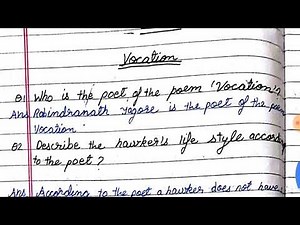 Vocation
Q1 Who is the poet of the poem 'Vocation'?
Ans Rabindranath Tagore is the poet of the poem
Vocation
Q2 Describe the hawker's life style according
to the poet?
Ans According to the poet a hawker does not have